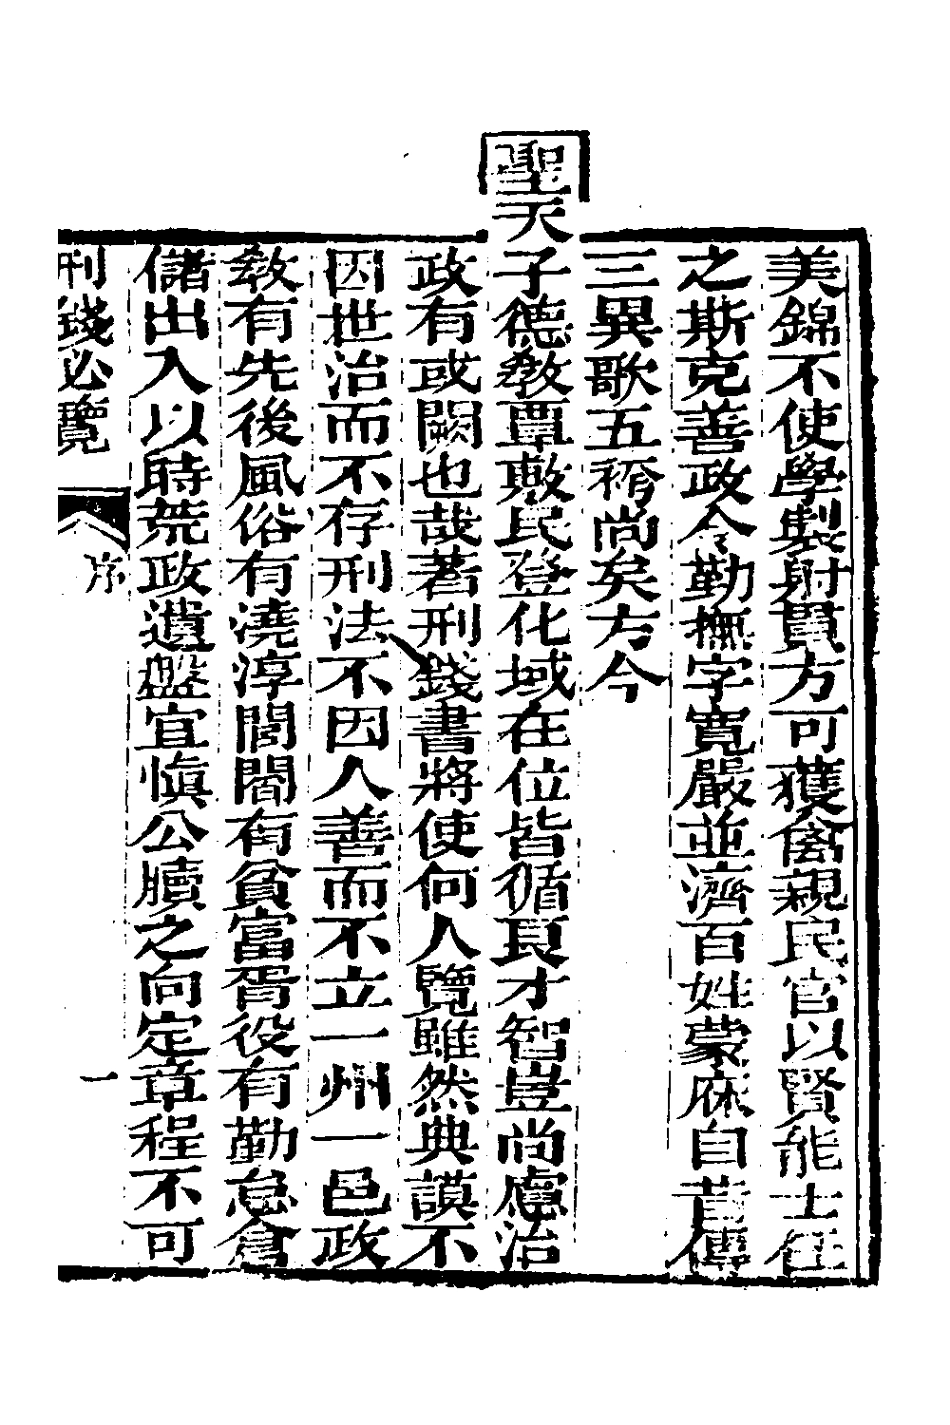 美錦不使學製射貫方可獲禽親民官以賢能士任
之斯克善政令勤撫字寬嚴並濟百姓蒙庥自昔傳
三異歌五袴尚矣方今
聖天子德敎覃敷民登化域在位皆循良才智豈尚慮治
政有或闕也哉著刑錢書將使何人覽雖然典謨不
因世治而不存刑法不因人善而不立一州一邑政
敎有先後風俗有澆淳閭閻有貧富胥役有勤怠倉
儲出入以時荒政遺盤宜愼公牘之向定章程不可
刑錢必覽
序
一